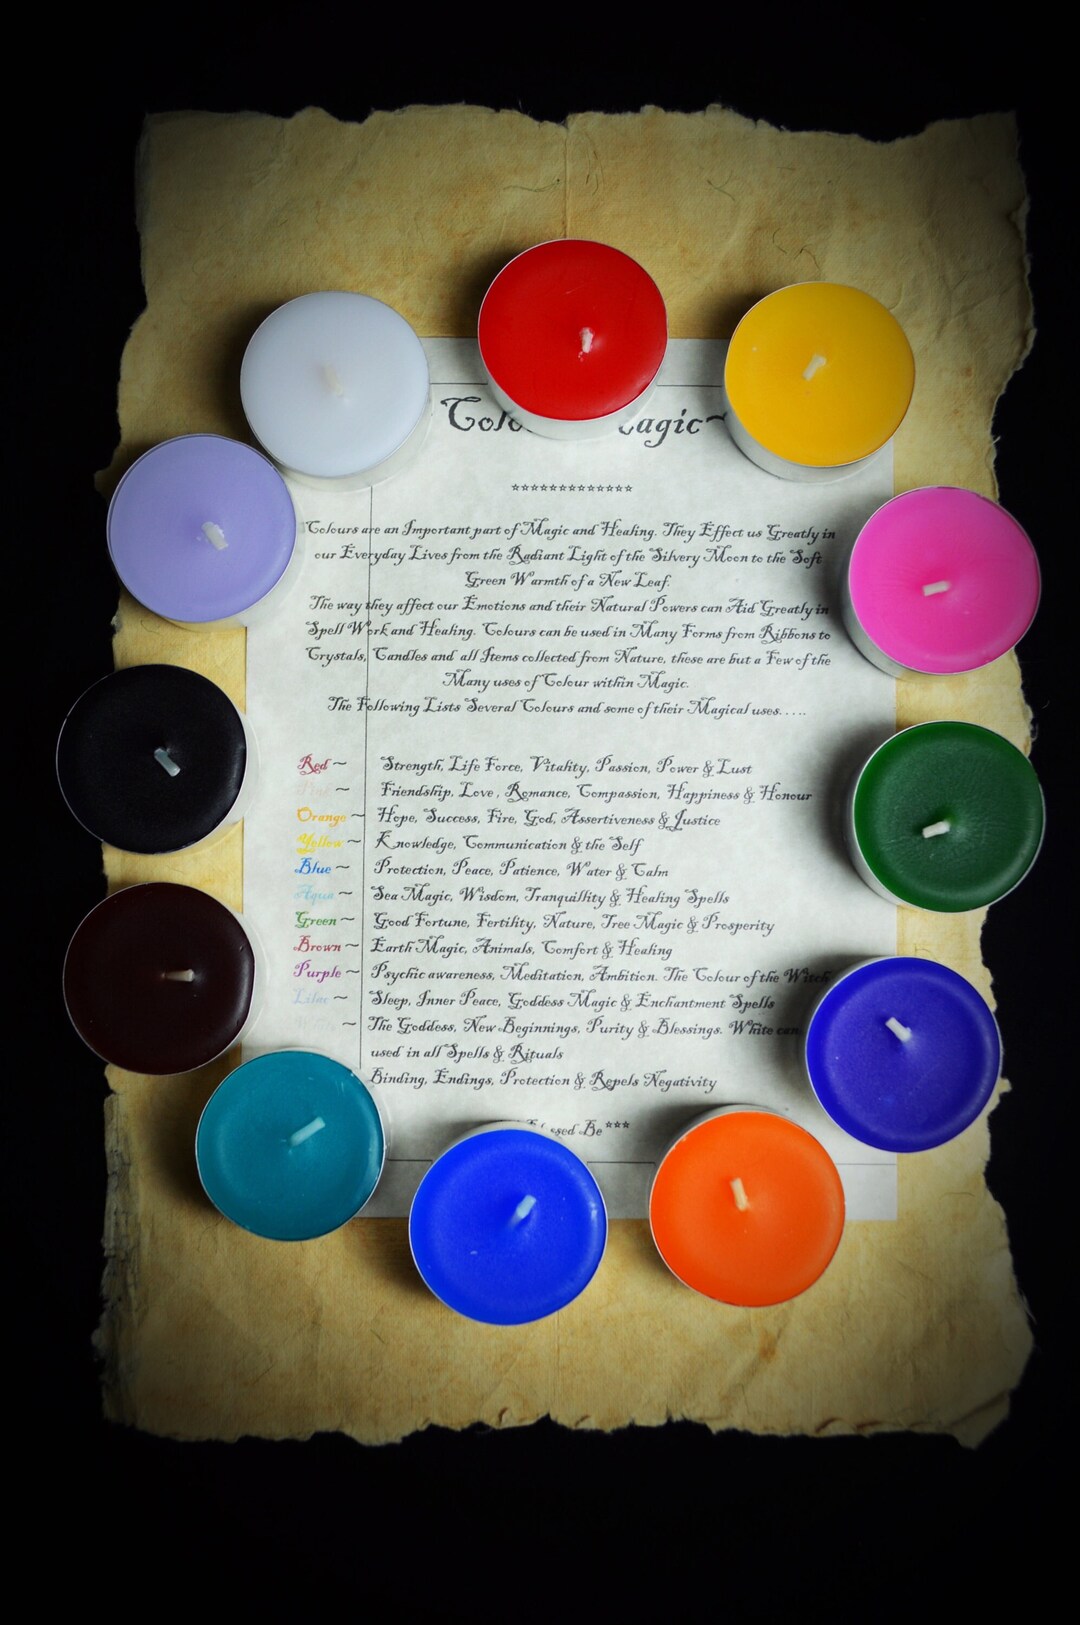 Colo agic~
*************
Colours are an Important part of Magic and Healing. They Effect us Greatly in
our Everyday Lives from the Radiant Light of the Silvery Moon to the Soft
Green Warmth of a New Leaf.
The way they affect our Emotions and their Natural Powers can Aid Greatly in
Spell Work and Healing. Colours can be used in Many Forms from Ribbons to
Crystals, Candles and all Items collected from Nature, these are but a Few of the
Many uses of Colour within Magic.
The Following Lists Several Colours and some of their Magical uses.....
Red ~ Strength, Life Force, Vitality, Passion, Power & Lust
~ Friendship, Love, Romance, Compassion, Happiness & Honour
Orange ~ Hope, Success, Fire, God, Assertiveness & Justice
Yellow ~ Knowledge, Communication & the Self
Blue ~ Protection, Peace, Patience, Water & Calm
Aqua ~ Sea Magic, Wisdom, Tranquillity & Healing Spells
Green ~ Good Fortune, Fertility, Nature, Tree Magic & Prosperity
Brown ~ Earth Magic, Animals, Comfort & Healing
Purple ~ Psychic awareness, Meditation, Ambition. The Colour of the Witch
Lilac ~ Sleep, Inner Peace, Goddess Magic & Enchantment Spells
~ The Goddess, New Beginnings, Purity & Blessings. White can
used in all Spells & Rituals
Binding, Endings, Protection & Repels Negativity
ssed Be***